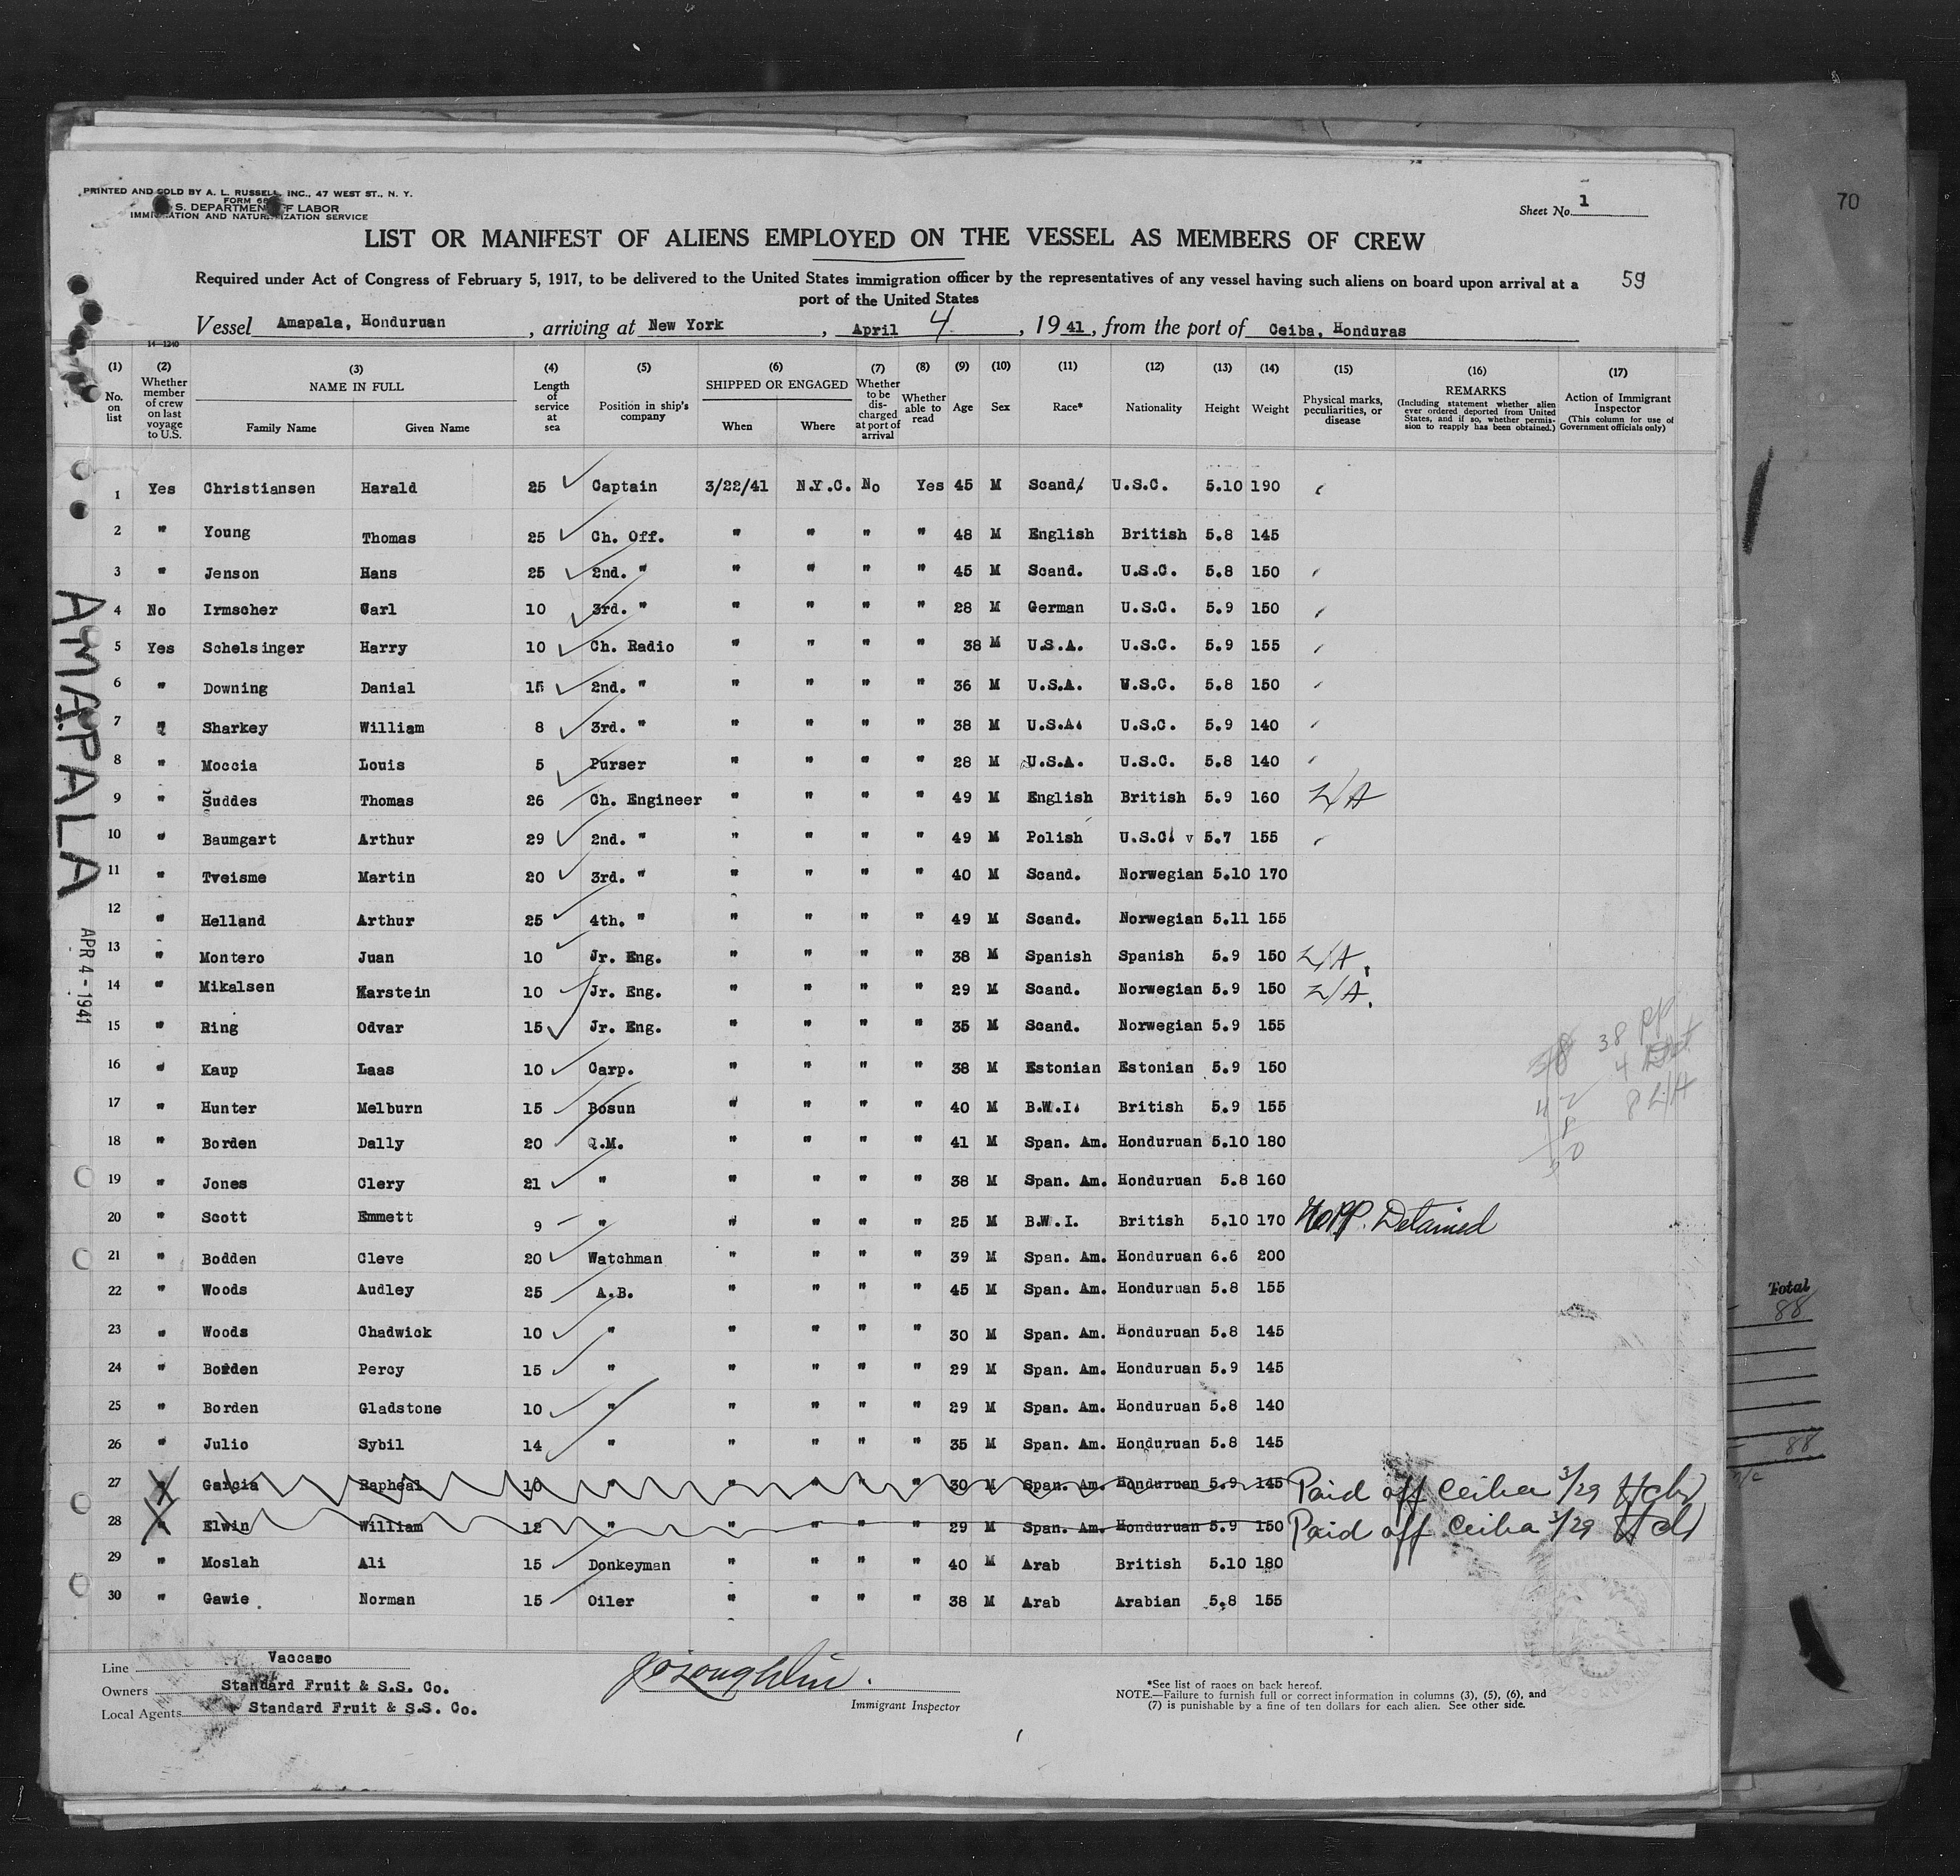 PRINTED AND SOLD BY A. L. RUSSELL, INC., 47 WEST ST., N. Y.
FORM 68
S. DEPARTMENT OF LABOR
IMMIGRATION AND NATURALIZATION SERVICE
Sheet No. 1
70
LIST OR MANIFEST OF ALIENS EMPLOYED ON THE VESSEL AS MEMBERS OF CREW
Required under Act of Congress of February 5, 1917, to be delivered to the United States immigration officer by the representatives of any vessel having such aliens on board upon arrival at a
port of the United States
59
Vessel Amapala, Honduruan, arriving at New York, April 4, 19 41, from the port of Ceiba, Honduras
14-1240
(1) No. on list (2) Whether member of crew on last voyage to U.S. (3) NAME IN FULL Family Name Given Name (4) Length of service at sea (5) Position in ship's company (6) SHIPPED OR ENGAGED When Where (7) Whether to be discharged at port of arrival (8) Whether able to read (9) Age (10) Sex (11) Race* (12) Nationality (13) Height (14) Weight (15) Physical marks, peculiarities, or disease (16) REMARKS (Including statement whether alien ever ordered deported from United States, and if so, whether permission to reapply has been obtained.) (17) Action of Immigrant Inspector (This column for use of Government officials only)
1 Yes Christiansen Harald 25 Captain 3/22/41 N.Y.C. No Yes 45 M Scand. U.S.C. 5.10 190
2 " Young Thomas 25 Ch. Off. " " " " 48 M English British 5.8 145
3 " Jenson Hans 25 2nd. " " " " " 45 M Scand. U.S.C. 5.8 150
4 No Irmscher Carl 10 3rd. " " " " " 28 M German U.S.C. 5.9 150
5 Yes Schelsinger Harry 10 Ch. Radio " " " " 38 M U.S.A. U.S.C. 5.9 155
6 " Downing Danial 15 2nd. " " " " " 36 M U.S.A. U.S.C. 5.8 150
7 " Sharkey William 8 3rd. " " " " " 38 M U.S.A. U.S.C. 5.9 140
8 " Moccia Louis 5 Purser " " " " 28 M U.S.A. U.S.C. 5.8 140
9 " Suddes Thomas 26 Ch. Engineer " " " " 49 M English British 5.9 160 L/A
10 " Baumgart Arthur 29 2nd. " " " " " 49 M Polish U.S.C. v 5.7 155
11 " Tveisme Martin 20 3rd. " " " " " 40 M Scand. Norwegian 5.10 170
12 " Helland Arthur 25 4th. " " " " " 49 M Scand. Norwegian 5.11 155
13 " Montero Juan 10 Jr. Eng. " " " " 38 M Spanish Spanish 5.9 150 L/A.
14 " Mikalsen Karstein 10 Jr. Eng. " " " " 29 M Scand. Norwegian 5.9 150 L/A.
15 " Ring Odvar 15 Jr. Eng. " " " " 35 M Scand. Norwegian 5.9 155
16 " Kaup Laas 10 Carp. " " " " 38 M Estonian Estonian 5.9 150
17 " Hunter Melburn 15 Bosun " " " " 40 M B.W.I. British 5.9 155
18 " Borden Dally 20 Q.M. " " " " 41 M Span. Am. Honduruan 5.10 180
19 " Jones Clery 21 " " " " " 38 M Span. Am. Honduruan 5.8 160
20 " Scott Emmett 9 " " " " " 25 M B.W.I. British 5.10 170 No PP. Detained
21 " Bodden Cleve 20 Watchman " " " " 39 M Span. Am. Honduruan 6.6 200
22 " Woods Audley 25 A.B. " " " " 45 M Span. Am. Honduruan 5.8 155
23 " Woods Chadwick 10 " " " " " 30 M Span. Am. Honduruan 5.8 145
24 " Borden Percy 15 " " " " " 29 M Span. Am. Honduruan 5.9 145
25 " Borden Gladstone 10 " " " " " 29 M Span. Am. Honduruan 5.8 140
26 " Julio Sybil 14 " " " " " 35 M Span. Am. Honduruan 5.8 145
27 " Garcia Rapheal 10 " " " " " 30 M Span. Am. Honduruan 5.9 145 Paid off Ceiba 3/29
28 " Elwin William 12 " " " " " 29 M Span. Am. Honduruan 5.9 150 Paid off Ceiba 3/29
29 " Moslah Ali 15 Donkeyman " " " " 40 M Arab British 5.10 180
30 " Gawie Norman 15 Oiler " " " " 38 M Arab Arabian 5.8 155
38 PP
4 Det
8 L/A
AMAPALA
APR 4 - 1941
Total
88
88
Line Vaccaro
Owners Standard Fruit & S.S. Co.
Local Agents Standard Fruit & S.S. Co.
Immigrant Inspector
*See list of races on back hereof.
NOTE.—Failure to furnish full or correct information in columns (3), (5), (6), and
(7) is punishable by a fine of ten dollars for each alien. See other side.